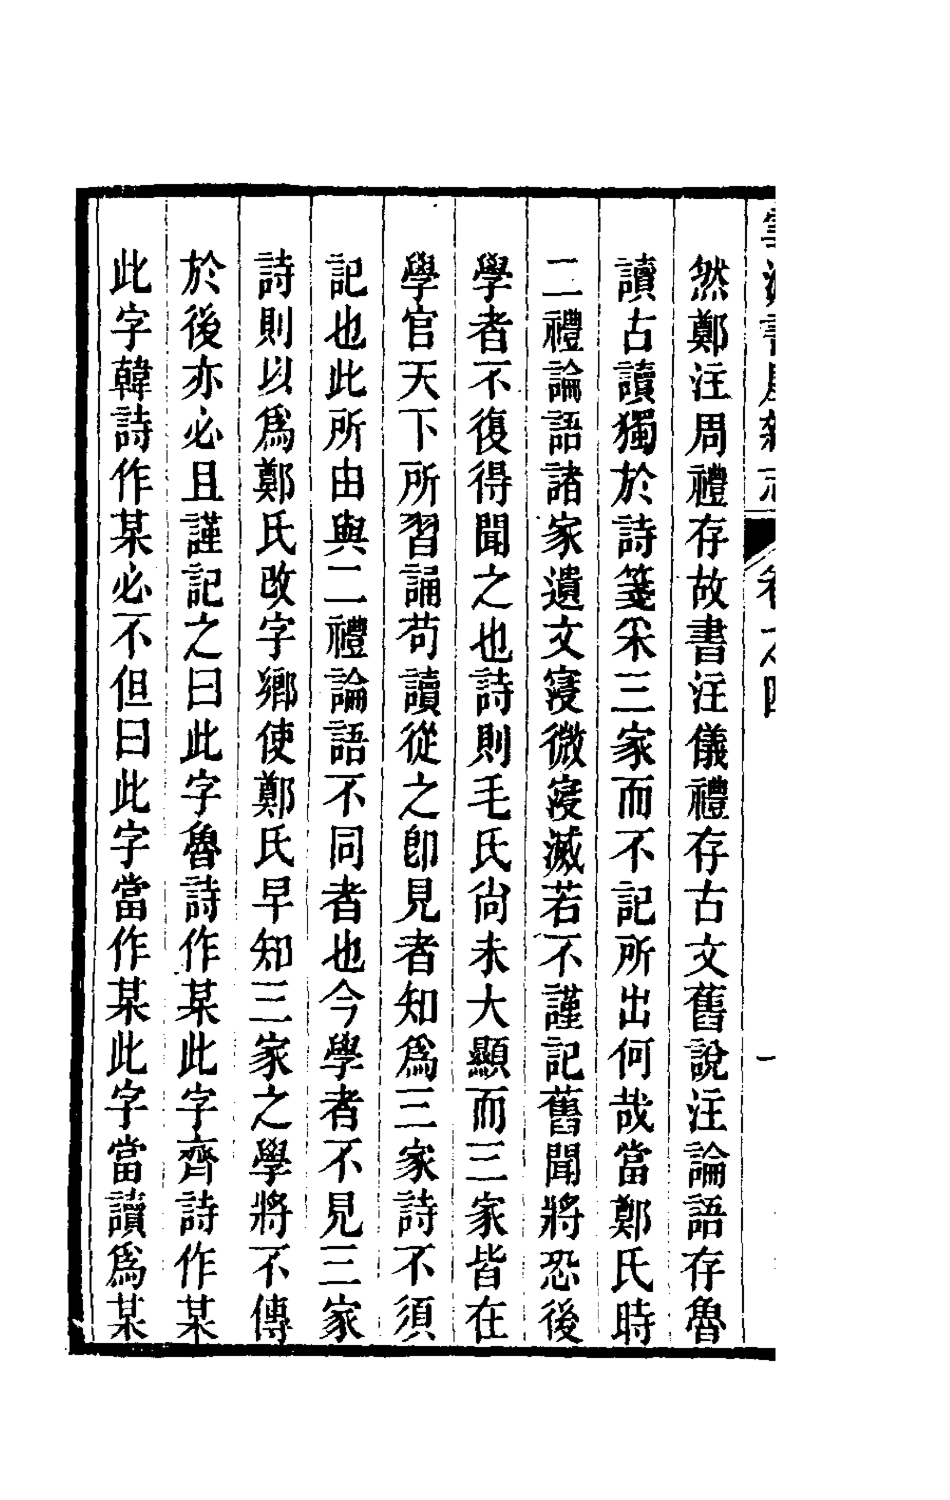 雪泥書屋雜志 卷之四 一
然鄭注周禮存故書注儀禮存古文舊說注論語存魯
讀古讀獨於詩箋采三家而不記所出何哉當鄭氏時
二禮論語諸家遺文寖微寖滅若不謹記舊聞將恐後
學者不復得聞之也詩則毛氏尚未大顯而三家皆在
學官天下所習誦苟讀從之卽見者知爲三家詩不須
記也此所由與二禮論語不同者也今學者不見三家
詩則以爲鄭氏改字鄉使鄭氏早知三家之學將不傳
於後亦必且謹記之曰此字魯詩作某此字齊詩作某
此字韓詩作某必不但曰此字當作某此字當讀爲某